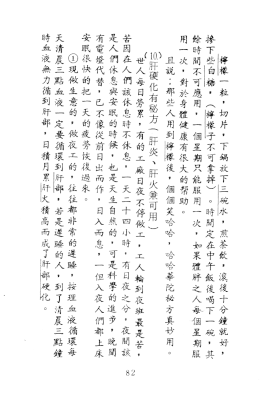 檸檬一粒，切片，下鍋，放下三碗水，煎茶飲，滾後十分鐘就好，
摻下些白糖，（檸檬子不可拿掉）。時間定在中午飯後喝下一碗，其
給時間不可應用，一個星期只能服用一次，如果體胖之人每個星期服
用一次，對於身體健康有很大的幫助。
且說：那些人用到檸檬後，個個笑哈哈，哈哈華陀秘方真妙用。
⑽肝硬化有秘方（肝炎、肝火㊝可用）
世人每日勞累，有的工廠日夜不停做工，工人輪到夜班最是苦，
苦因在人們該休息時不息，一天二十四小時，有日夜之分，夜間該
是人們休息與安眠的時候，也是天生自然的，可是科學的進步，晚間
有電燈代替，已不像從前日出而作，日入而息，一但入夜人們都上床
安眠很快的把一天的疲勞恢復過來。
①現做生意的，夜做工的，往往都非常的遲睡，按理血液循環每
天清晨三點血液一定要循環到肝部，若是遲睡的人，到了清晨三點鐘
時血液無力循到肝部，日積月累肝火積高而成了肝部硬化。
82